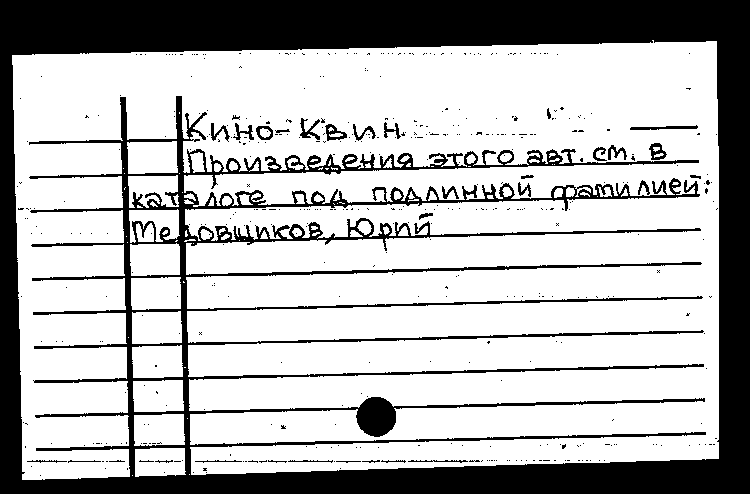 Кино-Квин
Произведения этого авт. см. в
каталоге под подлинной фамилией:
Медовщиков, Юрий